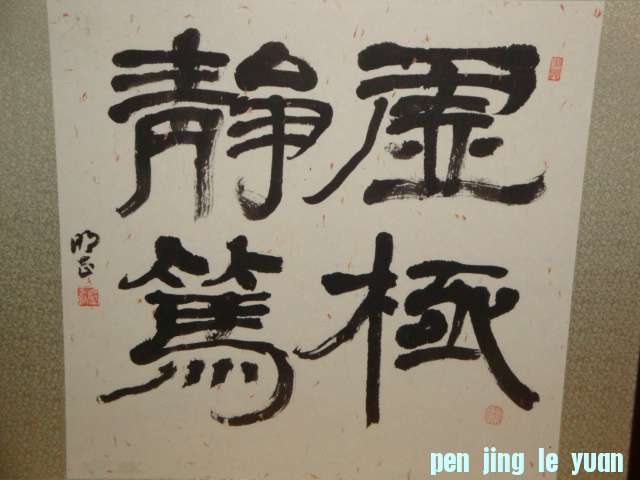 虛極
靜篤
明正
pen jing le yuan